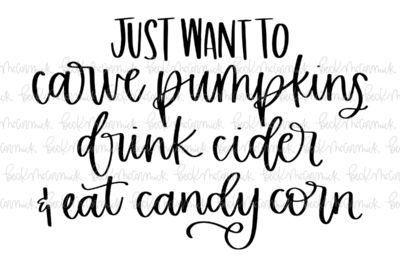 JUST WANT TO
carve pumpkins
drink cider
& eat candy corn